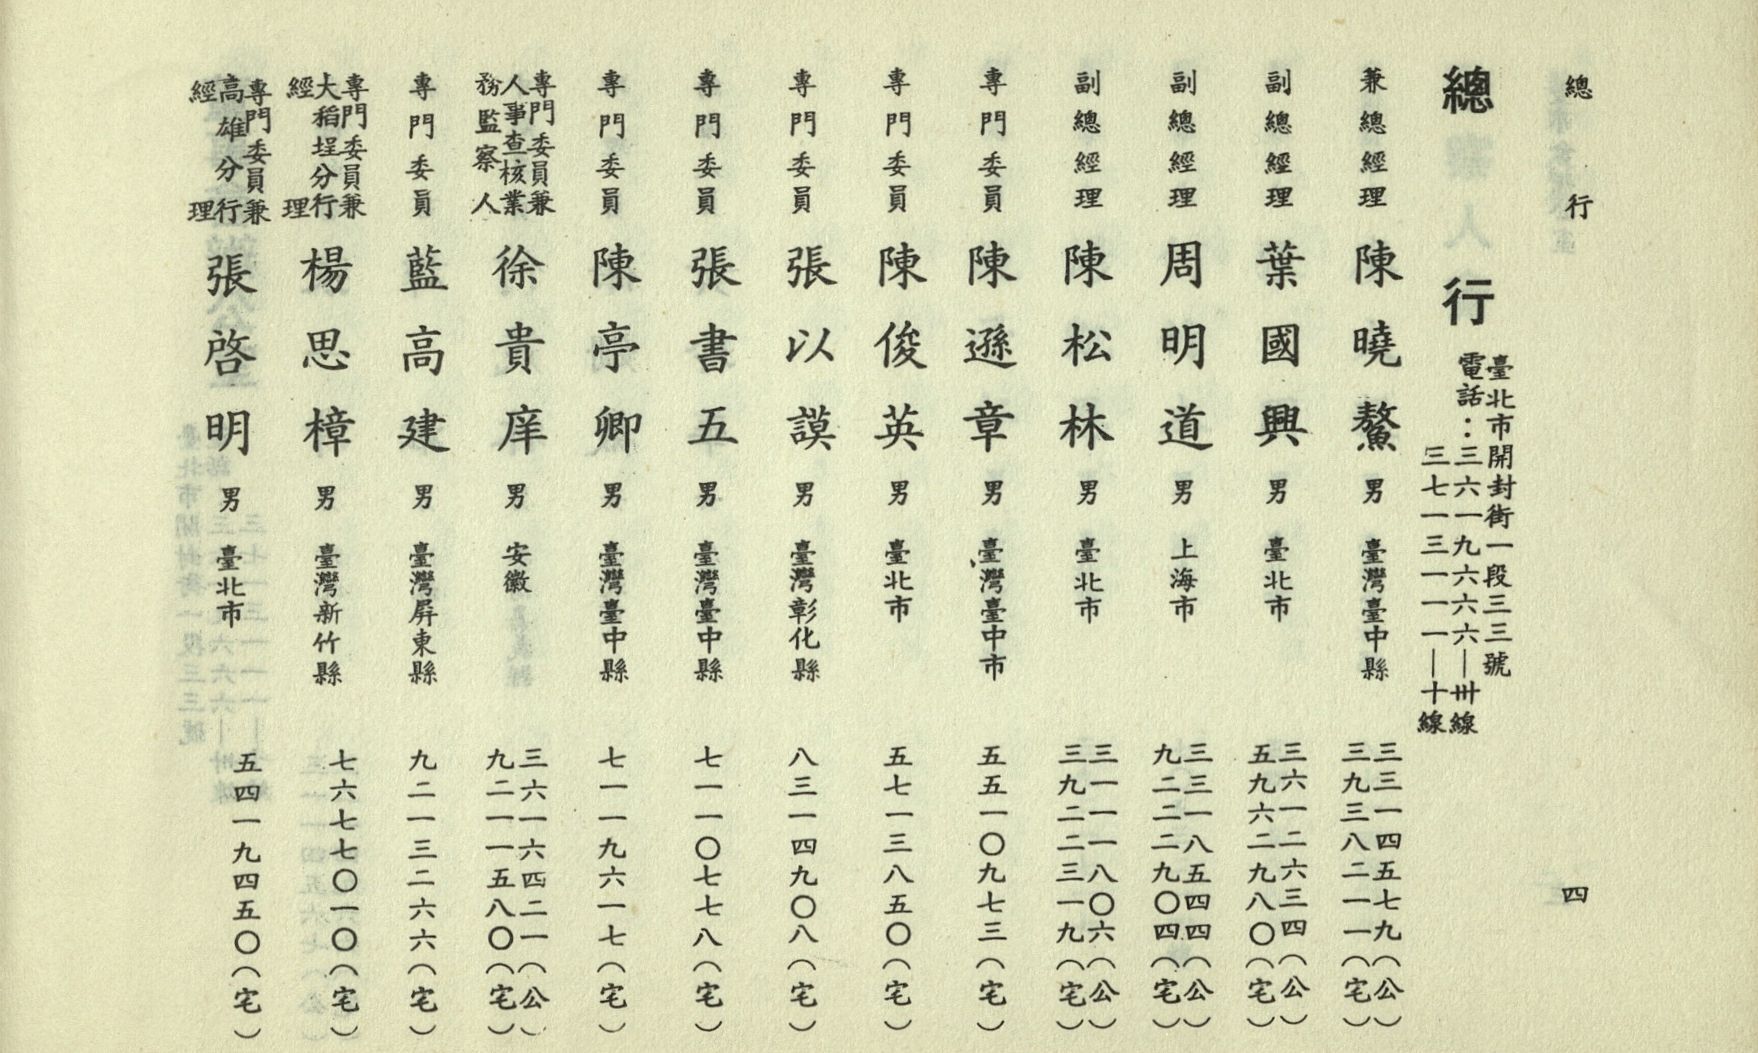 總行
四
總行
臺北市開封街一段三三號
電話：三六一九六六六—卅線
三七一三一一一—十線
兼總經理 陳曉鰲 男 臺灣臺中縣 三三一四五七九（公）
三九三八二一一（宅）
副總經理 葉國興 男 臺北市 三六一二六三四（公）
五九六二九八〇（宅）
副總經理 周明道 男 上海市 三三一八五四四（公）
九二二二九〇四（宅）
副總經理 陳松林 男 臺北市 三一一一八〇六（公）
三九二二三一九（宅）
專門委員 陳遜章 男 臺灣臺中市 五五一〇九七三（宅）
專門委員 陳俊英 男 臺北市 五七一三八五〇（宅）
專門委員 張以謨 男 臺灣彰化縣 八三一四九〇八（宅）
專門委員 張書五 男 臺灣臺中縣 七一一〇七七八（宅）
專門委員 陳亭卿 男 臺灣臺中縣 七一一九六一七（宅）
專門委員兼
人事查核業
務監察人 徐貴庠 男 安徽 三六一六四二一（公）
九二一一五八〇（宅）
專門委員 藍高建 男 臺灣屏東縣 九二一三二六六（宅）
專門委員兼
大稻埕分行
經理 楊思樟 男 臺灣新竹縣 七六七七〇一〇（宅）
專門委員兼
高雄分行
經理 張啓明 男 臺北市 五四一九四五〇（宅）